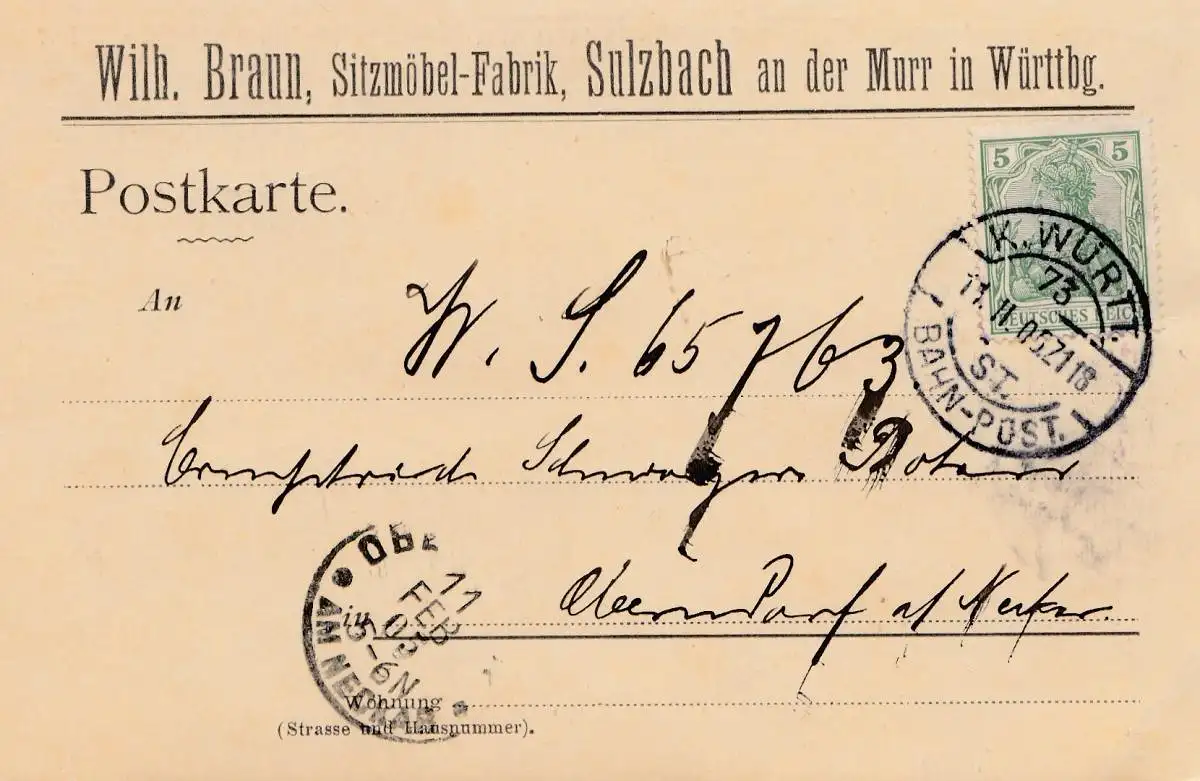 Wilh. Braun, Sitzmöbel-Fabrik, Sulzbach an der Murr in Württbg.
Postkarte.
5 5
DEUTSCHES REICH
K. WÜRTT.
73
11. II 05 Z1118
ST.
BAHN-POST.
An
W. S. 65763.
Schwager
Oberndorf a/ Neckar.
in
OBE
11
FEB
05
5-6N
AM NECKAR
Wohnung
(Strasse und Hausnummer).